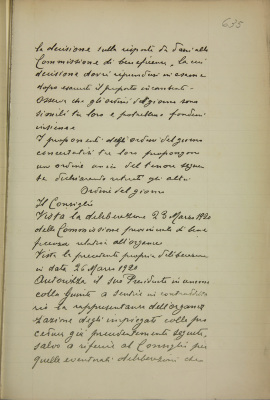 635
la decisione sulla risposta da darsi alla
Commissione di beneficenza, la cui
decisione dovrà
dopo esaurito il proposto
Osserva che gli ordini del giorno sono
simili tra loro e potrebbero fondersi
insieme
I proponenti degli ordini del giorno
tra loro propongono
un ordine unico del tenore seguente
dichiarando ritirati gli altri
Ordine del giorno
Il Consiglio
Vista la deliberazione 23 Marzo 1920
della Commissione provinciale di beneficenza
relativa all'organico
Vista la precedente propria deliberazione
in data 26 Marzo 1920
Autorizza il suo Presidente in unione
colla Giunta a sentire in contraddittorio
la rappresentanza dell'organizzazione
degli impiegati colla procedura
già precedentemente seguita,
salvo a riferire al Consiglio per
quelle eventuali deliberazioni che